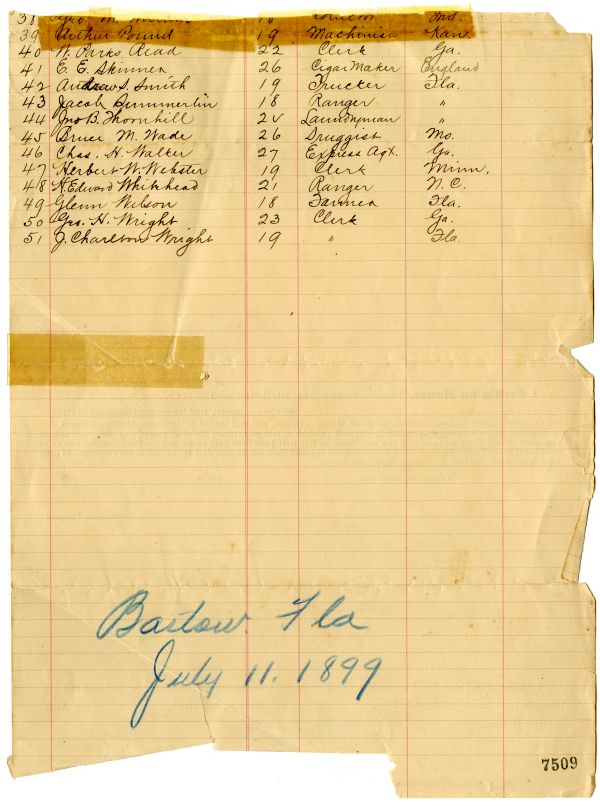 38 Geo. M. 18 Ind.
39 Arthur Pound 19 Machinist Kan.
40 W. Parks Read 22 Clerk Ga.
41 E. E. Skinner 26 Cigar Maker England
42 Andrew S. Smith 19 Trucker Fla.
43 Jacob Summerlin 18 Ranger "
44 Jno B. Thornhill 20 Laundryman "
45 Bruce M. Wade 26 Druggist Mo.
46 Chas. H. Walker 27 Express Agt. Ga.
47 Herbert W. Webster 19 Clerk Minn.
48 H. Edward Whitehead 21 Ranger N.C.
49 Glenn Wilson 18 Farmer Fla.
50 Geo. H. Wright 23 Clerk Ga.
51 J. Charlton Wright 19 " Fla.
Bartow. Fla
July 11. 1899
7509